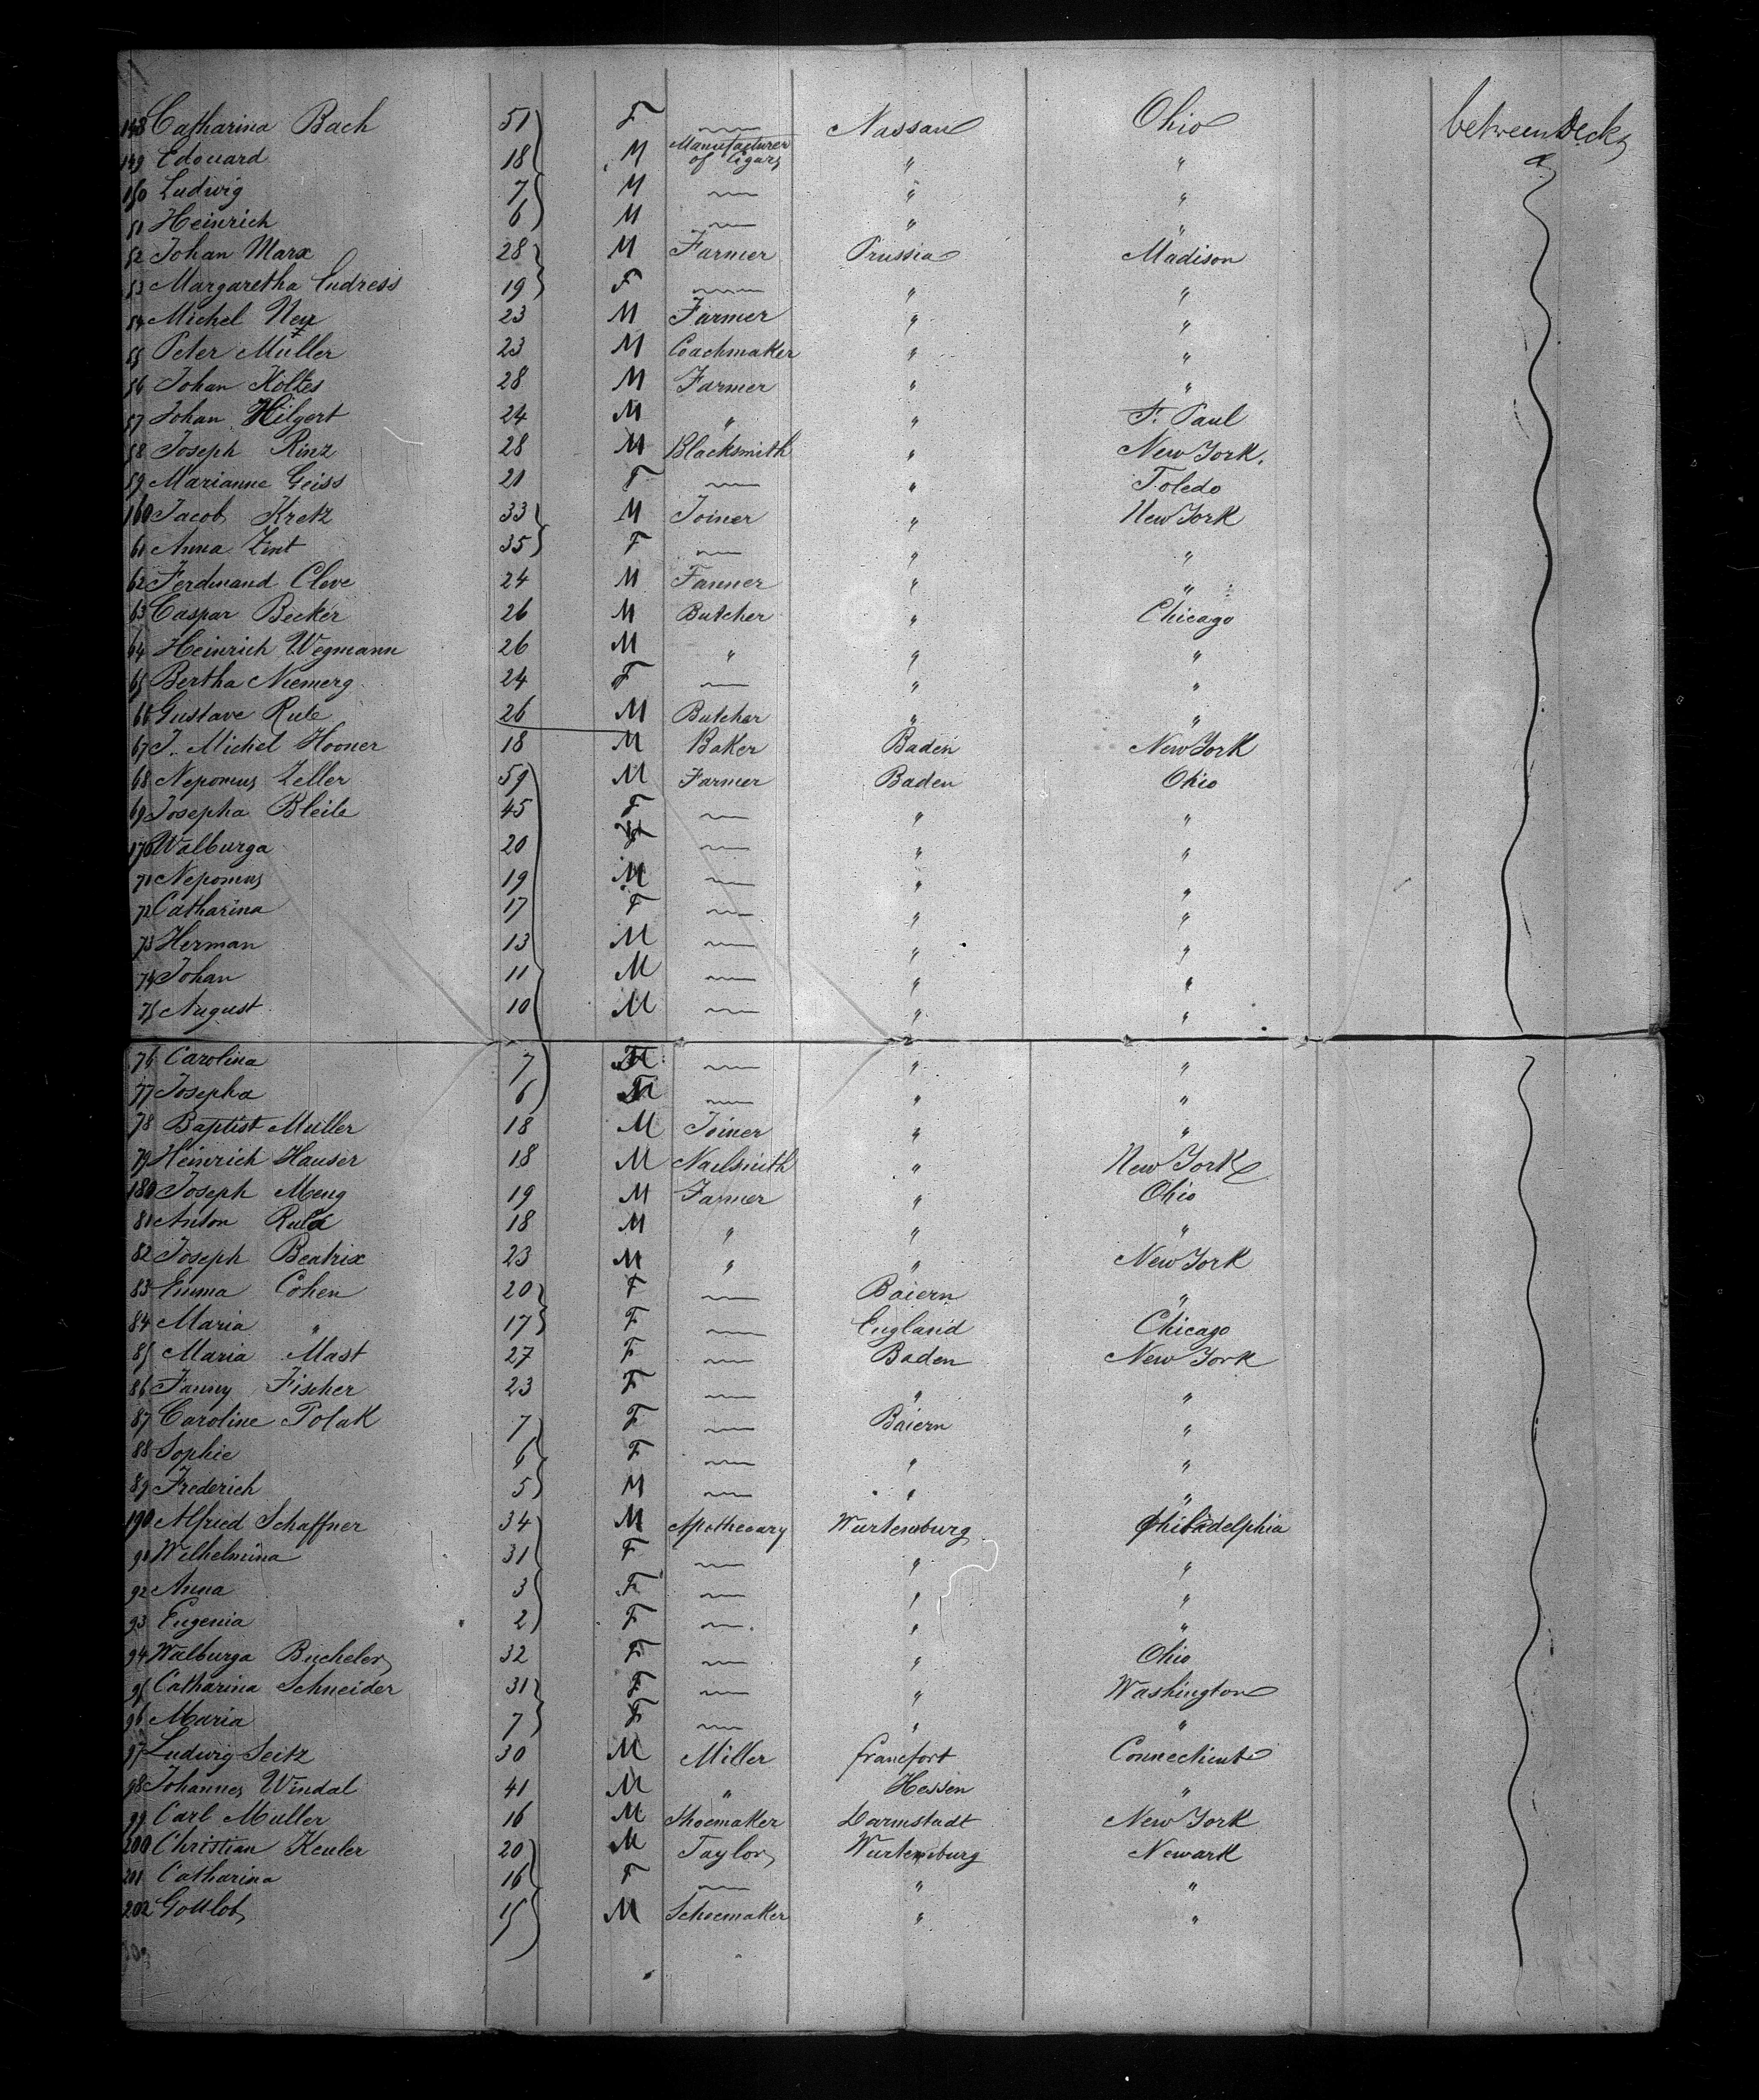 148 Catharina Bach 51 F Nassau Ohio between Decks
149 Edouard 18 M Manufacturer of Cigars " "
150 Ludwig 7 M " "
51 Heinrich 6 M " "
52 Johan Marx 28 M Farmer Prussia Madison
53 Margaretha Endress 19 F " "
54 Michel Ney 23 M Farmer " "
55 Peter Müller 23 M Coachmaker " "
56 Johan Koltes 28 M Farmer " "
57 Johan Hilgert 24 M " " St. Paul
58 Joseph Rinz 28 M Blacksmith " New York.
59 Marianne Geiss 21 F " Toledo
160 Jacob Kretz 33 M Joiner " New York
61 Anna Zint 35 F " "
62 Ferdinand Cleve 24 M " "
63 Caspar Becker 26 M Butcher " Chicago
64 Heinrich Wegmann 26 M " " "
65 Bertha Niemerg 24 F " "
66 Gustave Rute 26 M Butcher " "
67 J. Michel Hooner 18 M Baker Baden New York
68 Nepomus Zeller 59 M Farmer Baden Ohio
69 Josepha Bleile 45 F " "
170 Walburga 20 F " "
71 Nepomus 19 M " "
72 Catharina 17 F " "
73 Herman 13 M " "
74 Johan 11 M " "
75 August 10 M " "
76 Carolina 7 F " "
77 Josepha 6 F " "
78 Baptist Muller 18 M Joiner " "
79 Heinrich Hauser 18 M Nailsmith " New York
180 Joseph Meng 19 M Farmer " Ohio
81 Anton 18 M " " "
82 Joseph Beatrix 23 M " " New York
83 Emma Cohen 20 F Baiern "
84 Maria " 17 F England Chicago
85 Maria Mast 27 F Baden New York
86 Fanny Fischer 23 F " "
87 Caroline Polak 7 F Baiern "
88 Sophie 6 F " "
89 Frederich 5 M " "
190 Alfried Schaffner 34 M Apothecary Wurtemburg Philadelphia
91 Wilhelmina 31 F " "
92 Anna 3 F " "
93 Eugenia 2 F " "
94 Walburga Bucheler 32 F " Ohio
95 Catharina Schneider 31 F " Washington
96 Maria 7 F " "
97 Ludwig Seitz 30 M Miller francfort Connecticut
98 Johannes Windal 41 M " Hessen "
99 Carl Muller 16 M Shoemaker Darmstadt New York
200 Christian Keuler 20 M Taylor Wurtemburg Newark
201 Catharina 16 F " "
202 Gottlob 15 M Schoemaker " "